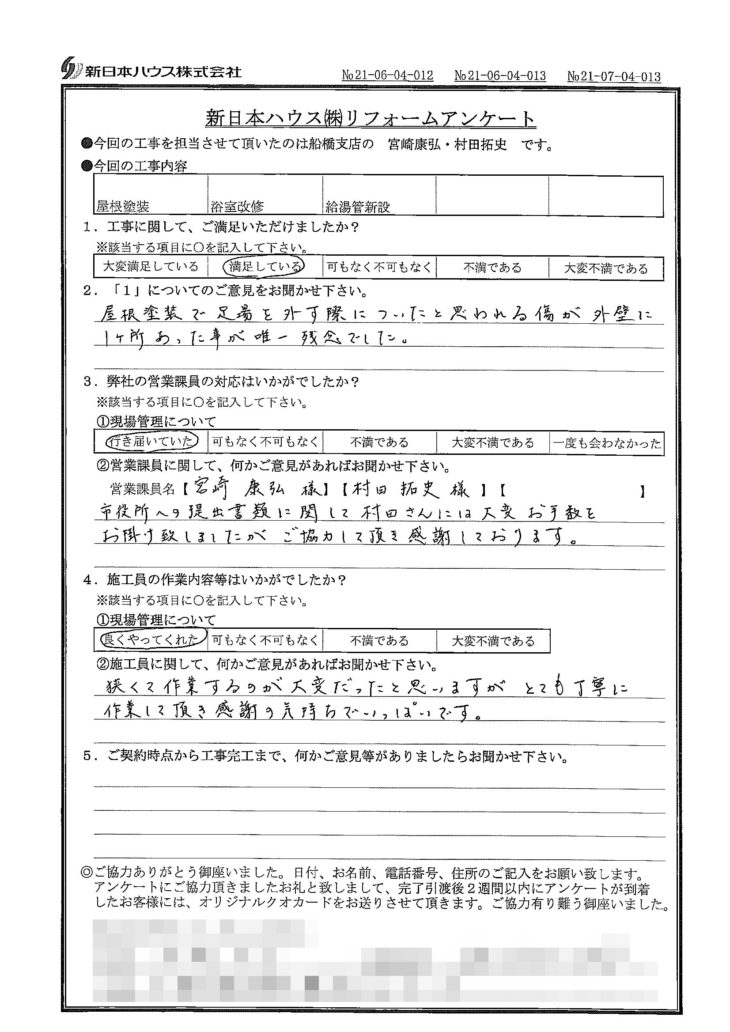 新日本ハウス株式会社
№21-06-04-012 №21-06-04-013 №21-07-04-013
新日本ハウス㈱リフォームアンケート
●今回の工事を担当させて頂いたのは船橋支店の 宮崎康弘・村田拓史 です。
●今回の工事内容
屋根塗装 浴室改修 給湯管新設
1．工事に関して、ご満足いただけましたか？
※該当する項目に○を記入して下さい。
大変満足している 満足している 可もなく不可もなく 不満である 大変不満である
2．「1」についてのご意見をお聞かせ下さい。
屋根塗装で足場を外す際についたと思われる傷が外壁に
1ヶ所あった事が唯一残念でした。
3．弊社の営業課員の対応はいかがでしたか？
※該当する項目に○を記入して下さい。
①現場管理について
行き届いていた 可もなく不可もなく 不満である 大変不満である 一度も会わなかった
②営業課員に関して、何かご意見があればお聞かせ下さい。
営業課員名【宮崎 康弘 様】【村田 拓史 様】【 】
市役所への提出書類に関して村田さんには大変お手数を
お掛け致しましたがご協力して頂き感謝しております。
4．施工員の作業内容等はいかがでしたか？
※該当する項目に○を記入して下さい。
①現場管理について
良くやってくれた 可もなく不可もなく 不満である 大変不満である
②施工員に関して、何かご意見があればお聞かせ下さい。
狭くて作業するのが大変だったと思いますがとても丁寧に
作業して頂き感謝の気持ちでいっぱいです。
5．ご契約時点から工事完工まで、何かご意見等がありましたらお聞かせ下さい。
◎ご協力ありがとう御座いました。日付、お名前、電話番号、住所のご記入をお願い致します。
アンケートにご協力頂きましたお礼と致しまして、完了引渡後2週間以内にアンケートが到着
したお客様には、オリジナルクオカードをお送りさせて頂きます。ご協力有り難う御座いました。